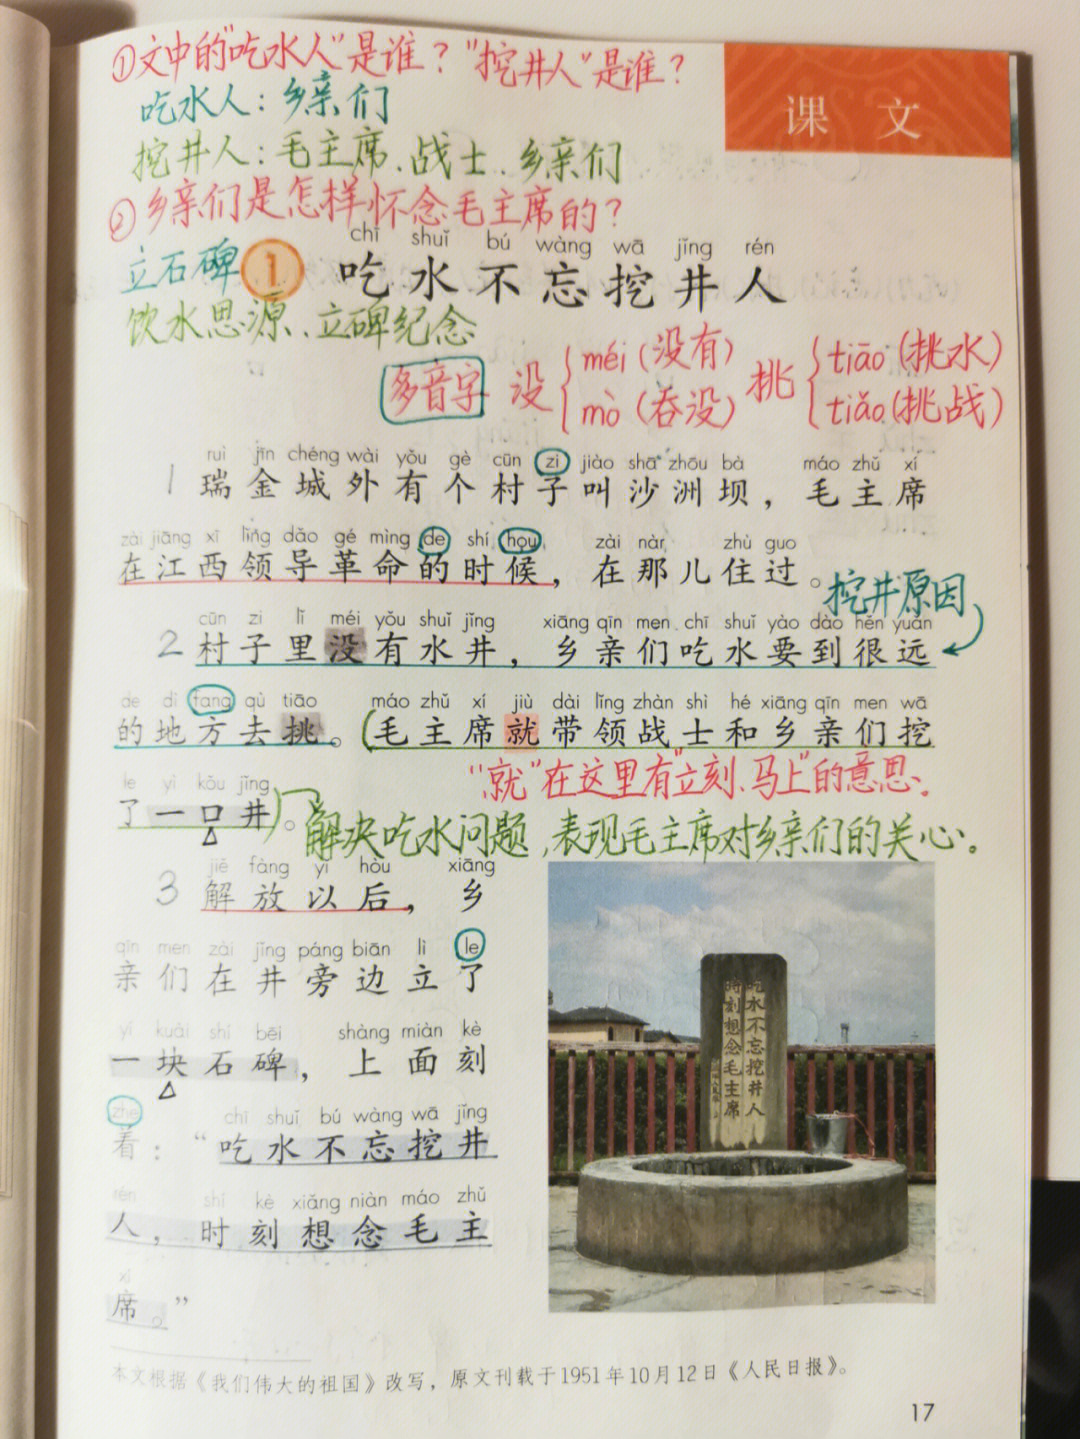 ①文中的"吃水人"是谁？"挖井人"是谁？
课 文
吃水人：乡亲们
挖井人：毛主席、战士、乡亲们
②乡亲们是怎样怀念毛主席的？
立石碑
饮水思源、立碑纪念
chī shuǐ bú wàng wā jǐng rén
1 吃水不忘挖井人
多音字 没 { méi（没有） mò（吞没） 挑 { tiāo（挑水） tiǎo（挑战）
ruì jīn chéng wài yǒu gè cūn zi jiào shā zhōu bà máo zhǔ xí
1 瑞金城外有个村子叫沙洲坝，毛主席
zài jiāng xī lǐng dǎo gé mìng de shí hou zài nàr zhù guo
在江西领导革命的时候，在那儿住过。
挖井原因
cūn zi lǐ méi yǒu shuǐ jǐng xiāng qīn men chī shuǐ yào dào hěn yuǎn
2 村子里没有水井，乡亲们吃水要到很远
de dì fang qù tiāo máo zhǔ xí jiù dài lǐng zhàn shì hé xiāng qīn men wā
的地方去挑。(毛主席就带领战士和乡亲们挖
"就"在这里有"立刻、马上"的意思。
le yì kǒu jǐng
了一口井)。
解决吃水问题，表现毛主席对乡亲们的关心。
jiě fàng yǐ hòu xiāng
3 解放以后，乡
qīn men zài jǐng páng biān lì le
亲们在井旁边立了
yí kuài shí bēi shàng miàn kè
一块石碑，上面刻
zhe chī shuǐ bú wàng wā jǐng
着："吃水不忘挖井
rén shí kè xiǎng niàn máo zhǔ
人，时刻想念毛主
xí
席。"
吃水不忘挖井人
時刻想念毛主席
本文根据《我们伟大的祖国》改写，原文刊载于1951年10月12日《人民日报》。
17